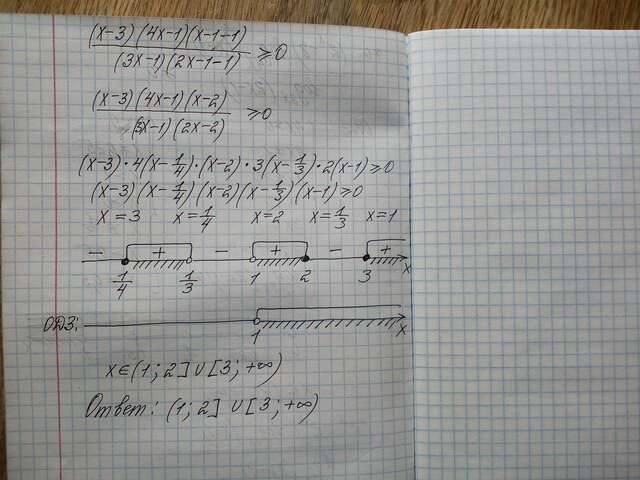 (x-3)(4x-1)(x-1-1)/(3x-1)(2x-1-1) ≥0
(x-3)(4x-1)(x-2)/(3x-1)(2x-2) ≥0
(x-3)·4(x-1/4)·(x-2)·3(x-1/3)·2(x-1)≥0
(x-3)(x-1/4)(x-2)(x-1/3)(x-1)≥0
x=3 x=1/4 x=2 x=1/3 x=1
- + - + - +
1/4 1/3 1 2 3 x
ОДЗ:
1 x
x∈(1;2]∪[3;+∞)
Ответ: (1;2]∪[3;+∞)